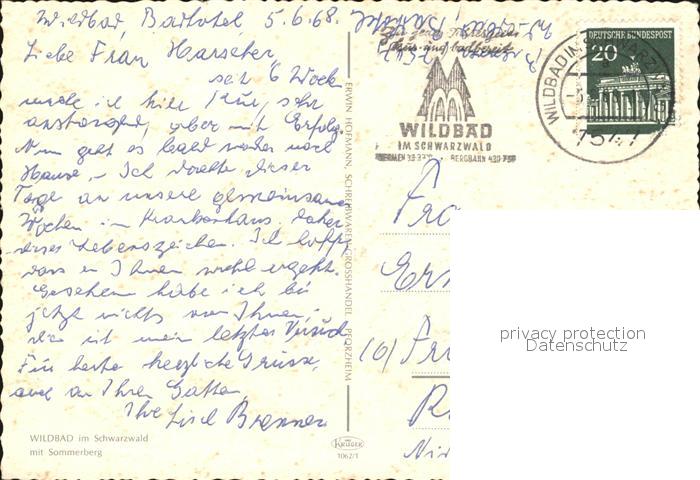 Wildbad, Badhotel, 5.6.68.
Liebe Frau Harscher,
seit 6 Wochen
mache ich hier Kur, sehr
anstrengend, aber mit Erfolg.
Nun geht es bald wieder nach
Hause. – Ich dachte dieser
Tage an unsere gemeinsamen
Wochen im Krankenhaus. Daher
dieses Lebenszeichen. Ich hoffe,
dass es Ihnen wohl ergeht.
Gesehen habe ich bis
jetzt nichts von Ihnen,
dies ist mein letzter Versuch
Für heute herzliche Grüsse,
auch an Ihren Gatten,
Ihre Lisel Brenner
WILDBAD im Schwarzwald
mit Sommerberg
ERWIN HOFMANN, SCHREIBWAREN-GROSSHANDEL, PFORZHEIM
KRÜGER
1062/1
zu jeder Jahreszeit
kur- und badbereit
WILDBAD
IM SCHWARZWALD
THERMEN BERGBAHN 430-750
WILDBAD IM SCHWARZWALD
7547
DEUTSCHE BUNDESPOST
20
Fra
(6)
privacy protection
Datenschutz